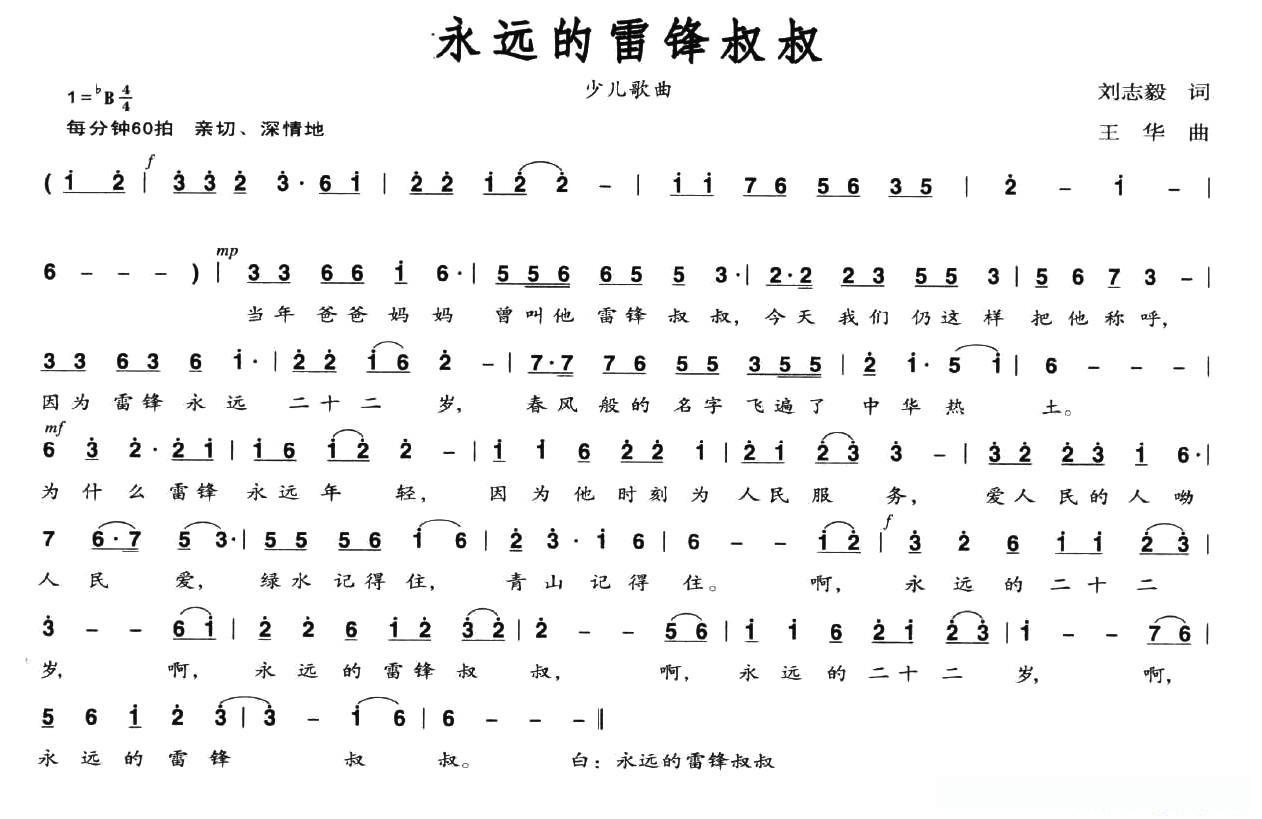 永远的雷锋叔叔
少儿歌曲
1=♭B 4/4
刘志毅 词
每分钟60拍 亲切、深情地
王华 曲
f
( i̇ 2̇ | 3̇ 3̇ 2̇ 3̇· 6 i̇ | 2̇ 2̇ i̇ 2̇ 2̇ – | i̇ i̇ 7 6 5 6 3 5 | 2̇ – i̇ – |
mp
6 – – – ) | 3 3 6 6 i̇ 6· | 5 5 6 6 5 5 3· | 2· 2 2 3 5 5 3 | 5 6 7 3 – |
当年爸爸妈妈 曾叫他雷锋叔叔, 今天我们仍这样把他称呼,
3 3 6 3 6 i̇· | 2̇ 2̇ i̇ 6 2̇ – | 7· 7 7 6 5 5 3 5 5 | 2̇ i̇· 5 i̇ | 6 – – – |
因为雷锋永远二十二岁, 春风般的名字飞遍了中华热土。
mf
6 3̇ 2̇· 2̇ i̇ | i̇ 6 i̇ 2̇ 2̇ – | i̇ i̇ 6 2̇ 2̇ i̇ | 2̇ i̇ 2̇ 3̇ 3̇ – | 3̇ 2̇ 2̇ 3̇ i̇ 6· |
为什么雷锋永远年轻, 因为他时刻为人民服务, 爱人民的人呦
f
7 6· 7 5 3· | 5 5 5 6 i̇ 6 | 2̇ 3̇· i̇ 6 | 6 – – i̇ 2̇ | 3̇ 2̇ 6 i̇ i̇ 2̇ 3̇ |
人民爱, 绿水记得住, 青山记得住。 啊, 永远的二十二
3̇ – – 6 i̇ | 2̇ 2̇ 6 i̇ 2̇ 3̇ 2̇ | 2̇ – – 5 6 | i̇ i̇ 6 2̇ i̇ 2̇ 3̇ | i̇ – – 7 6 |
岁, 啊, 永远的雷锋叔叔, 啊, 永远的二十二岁, 啊,
5 6 i̇ 2̇ 3̇ | 3̇ – i̇ 6 | 6 – – – ‖
永远的雷锋叔叔。 白：永远的雷锋叔叔